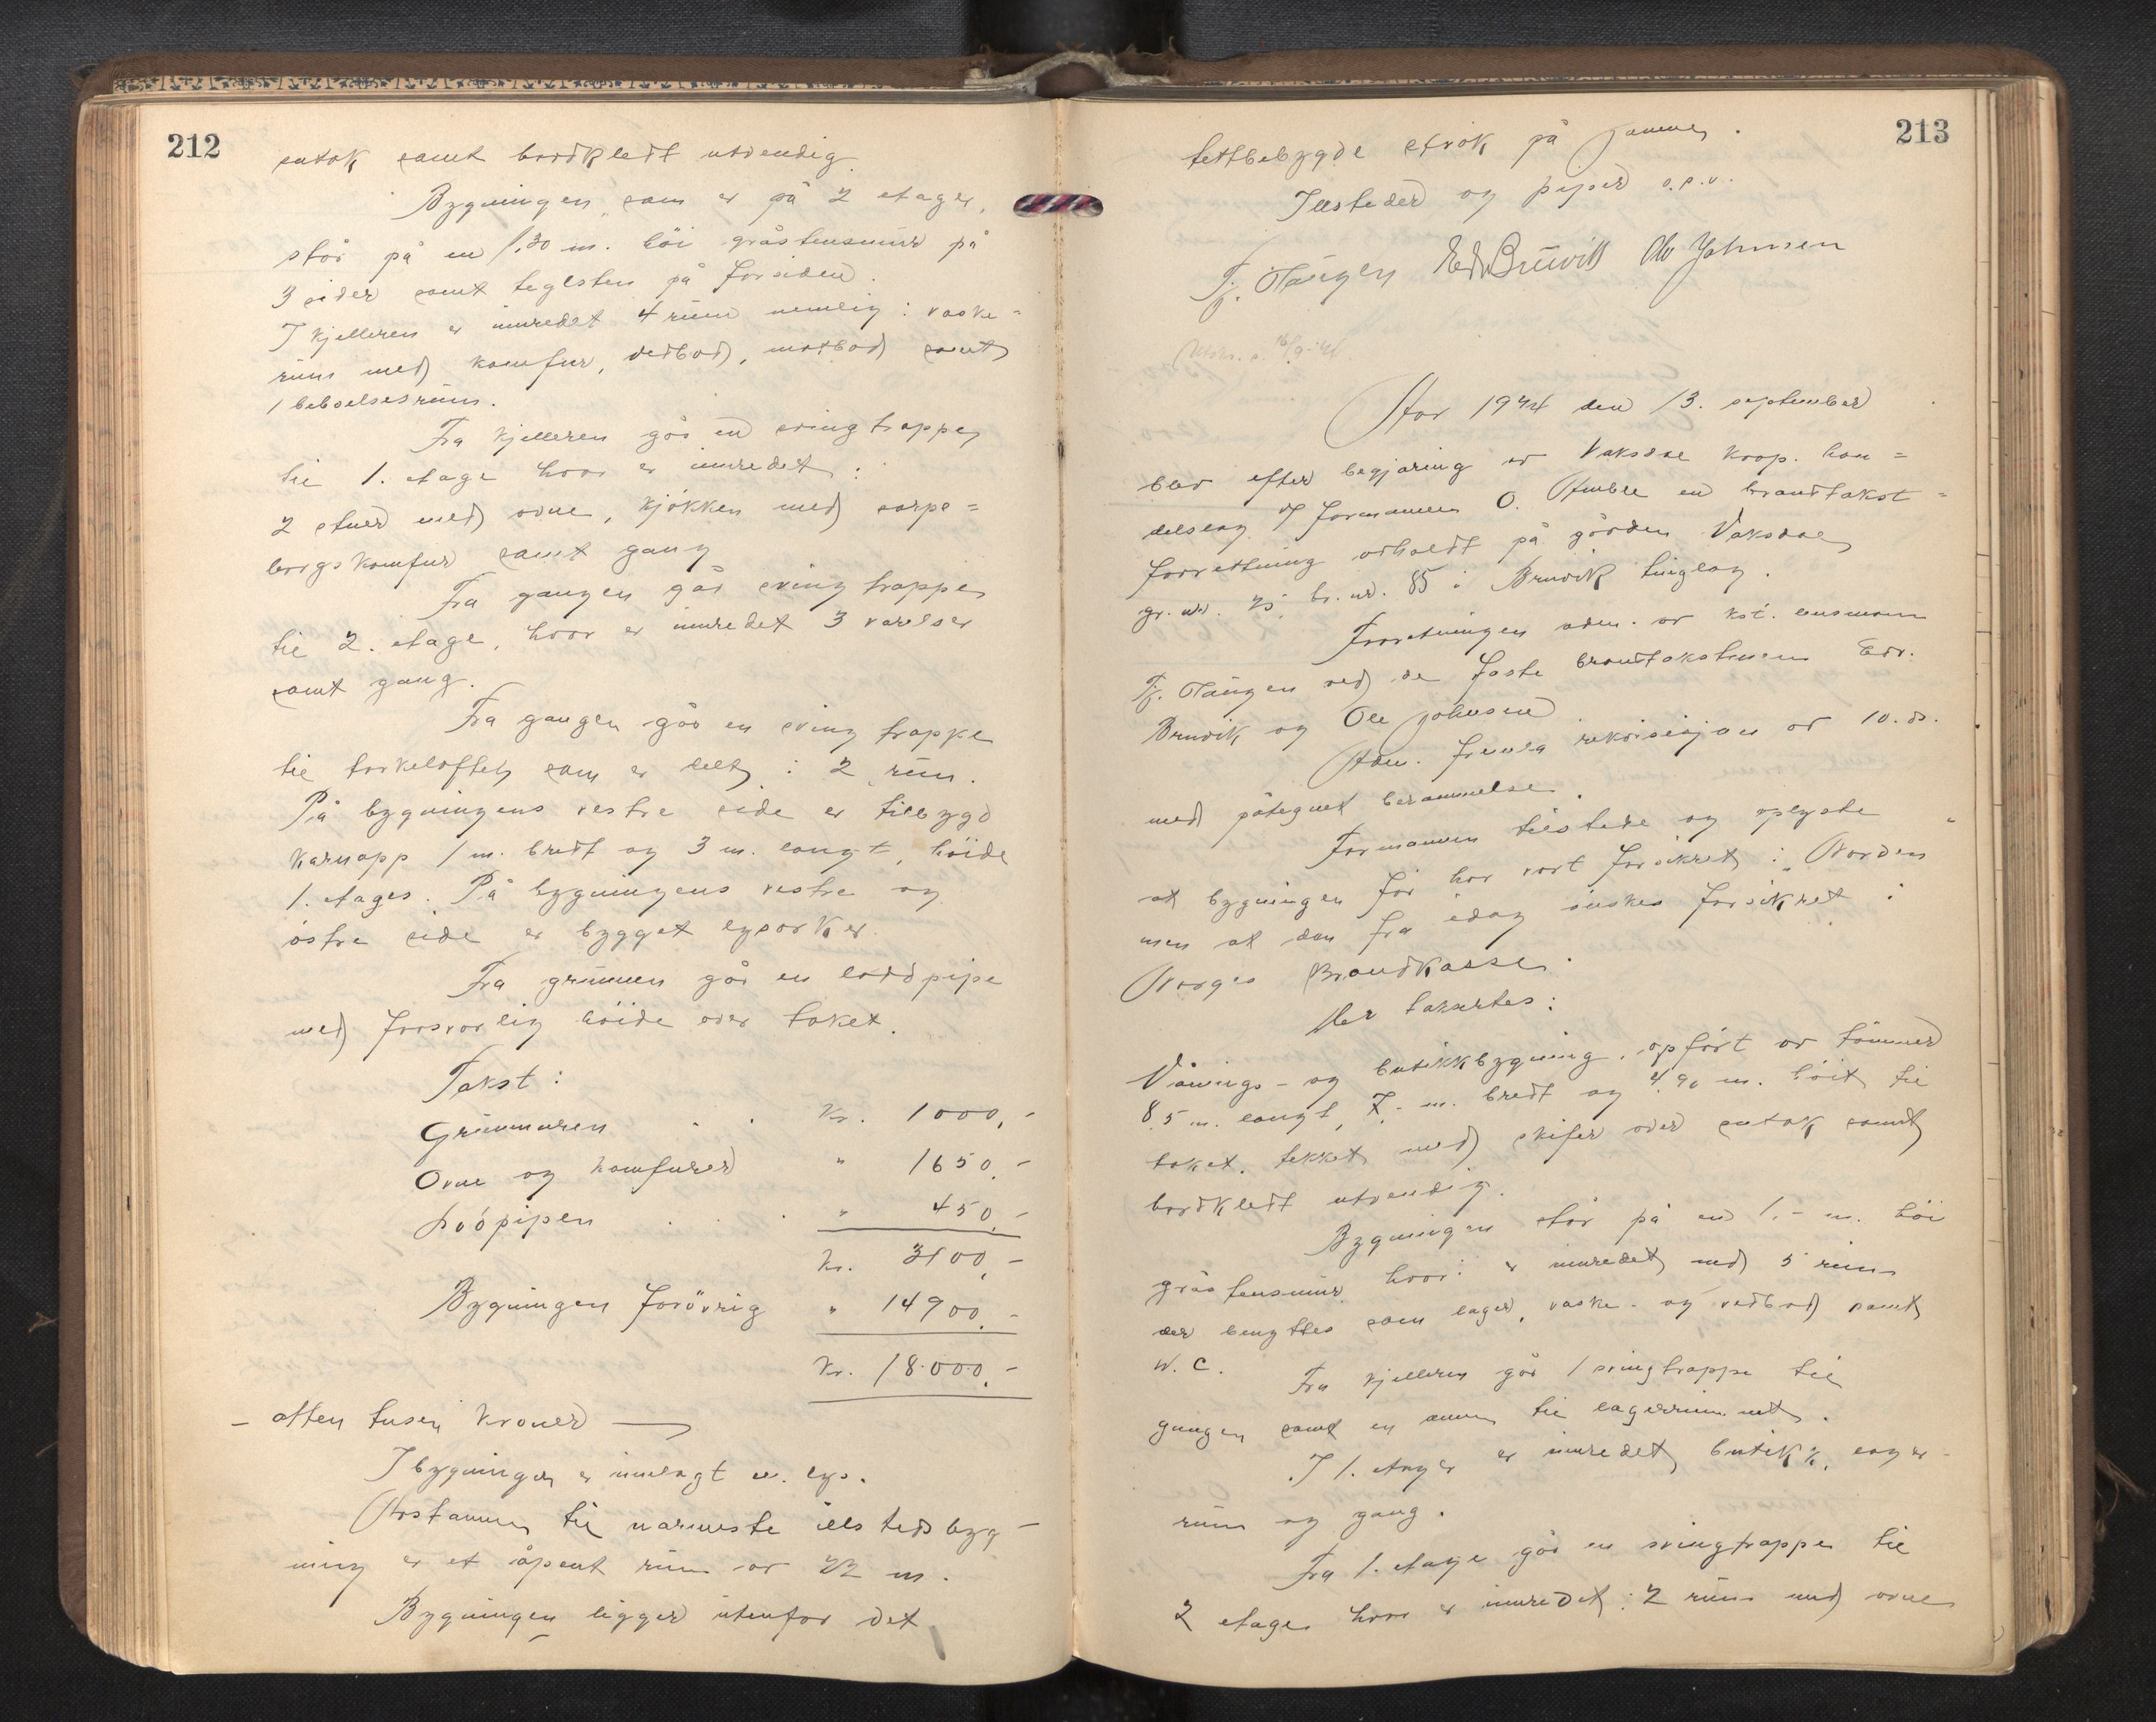 212
sutak samt bordkledt utvendig.
Bygningen, som er på 2 etager,
står på en 1,30 m. höi gråstensmur på
3 sider samt teglsten på forsiden.
I kjelleren er innredet 4 rum nemlig: vaske=
rum med komfur, vedbod, matbod samt
1 beboelsesrum.
Fra kjelleren går en svingtrappe
til 1. etage hvor er innredet:
2 stuer med ovne, kjökken med sarps=
borgskomfur samt gang
Fra gangen går svingtrappe
til 2. etage, hvor er innredet 3 værelser
samt gang.
Fra gangen går en svingtrappe
til tørkeloftet som er delt i 2 rum.
På bygningens vestre side er tilbygd
karnapp 1 m. bredt og 3 m. langt, höide
1. etages. På bygningens vestre og
östre side er bygget lysarker.
Fra grunnen går en loddpipe
med forsvarlig höide over taket.
Takst:
Grunnmuren . . kr. 1000,-
Ovne og komfurer " 1650,-
Loópipen . . . " 450,-
kr. 3100,-
Bygningen forövrig " 14900,-
kr. 18.000,-
- atten tusen kroner —
I bygningen er innlagt el. lys.
Avstannen til nærmeste illstedsbyg-
ning er et åpent rum av 22 m.
Bygningen ligger utenfor det
213
tettbebygde strök på Jamne.
Illsteder og piper o.s.v.
Tj. Stangen Edv Bruvik Ole Johnsen
År 1944 den 13. september
blev efter begjæring av Vaksdal koop. han=
delslag v/ formannen O. Amble en brandtakst=
forretning avholdt på gården Vaksdal
gr. nr. 25 br. nr. 85 i Bruvik tinglag.
Forretningen adm. av kst. lensmann
Tj. Stangen ved de faste branntakstmenn Edv.
Bruvik og Ole Johnsen
Adm. fremla rekvisisjon av 10. ds.
med påtegnet berammelse.
Formannen tilstede og oplyste
at bygningen för har vært forsikret i "Norden"
men at den fra idag önskes forsikret i
Norges Brandkasse.
Der takseres:
Vånings- og butikkbygning, opfört av tömmer
8,5 m. langt, 7,- m. bredt og 4,90 m. höit til
taket, tekket med skifer over sutak samt
bordkledt utvendig.
Bygningen står på en 1,- m. höi
gråstensmur hvor i er innredet med 5 rum
der benyttes som lager, vaske- og vedbod samt
W. C.
Fra kjelleren går 1 svingtrappe til
gangen samt en annen til lagerrummet.
I 1. etage er innredet butikk, lager-
rum og gang.
Fra 1. etage går en svingtrappe til
2 etage hvor er innredet: 2 rum med ovne